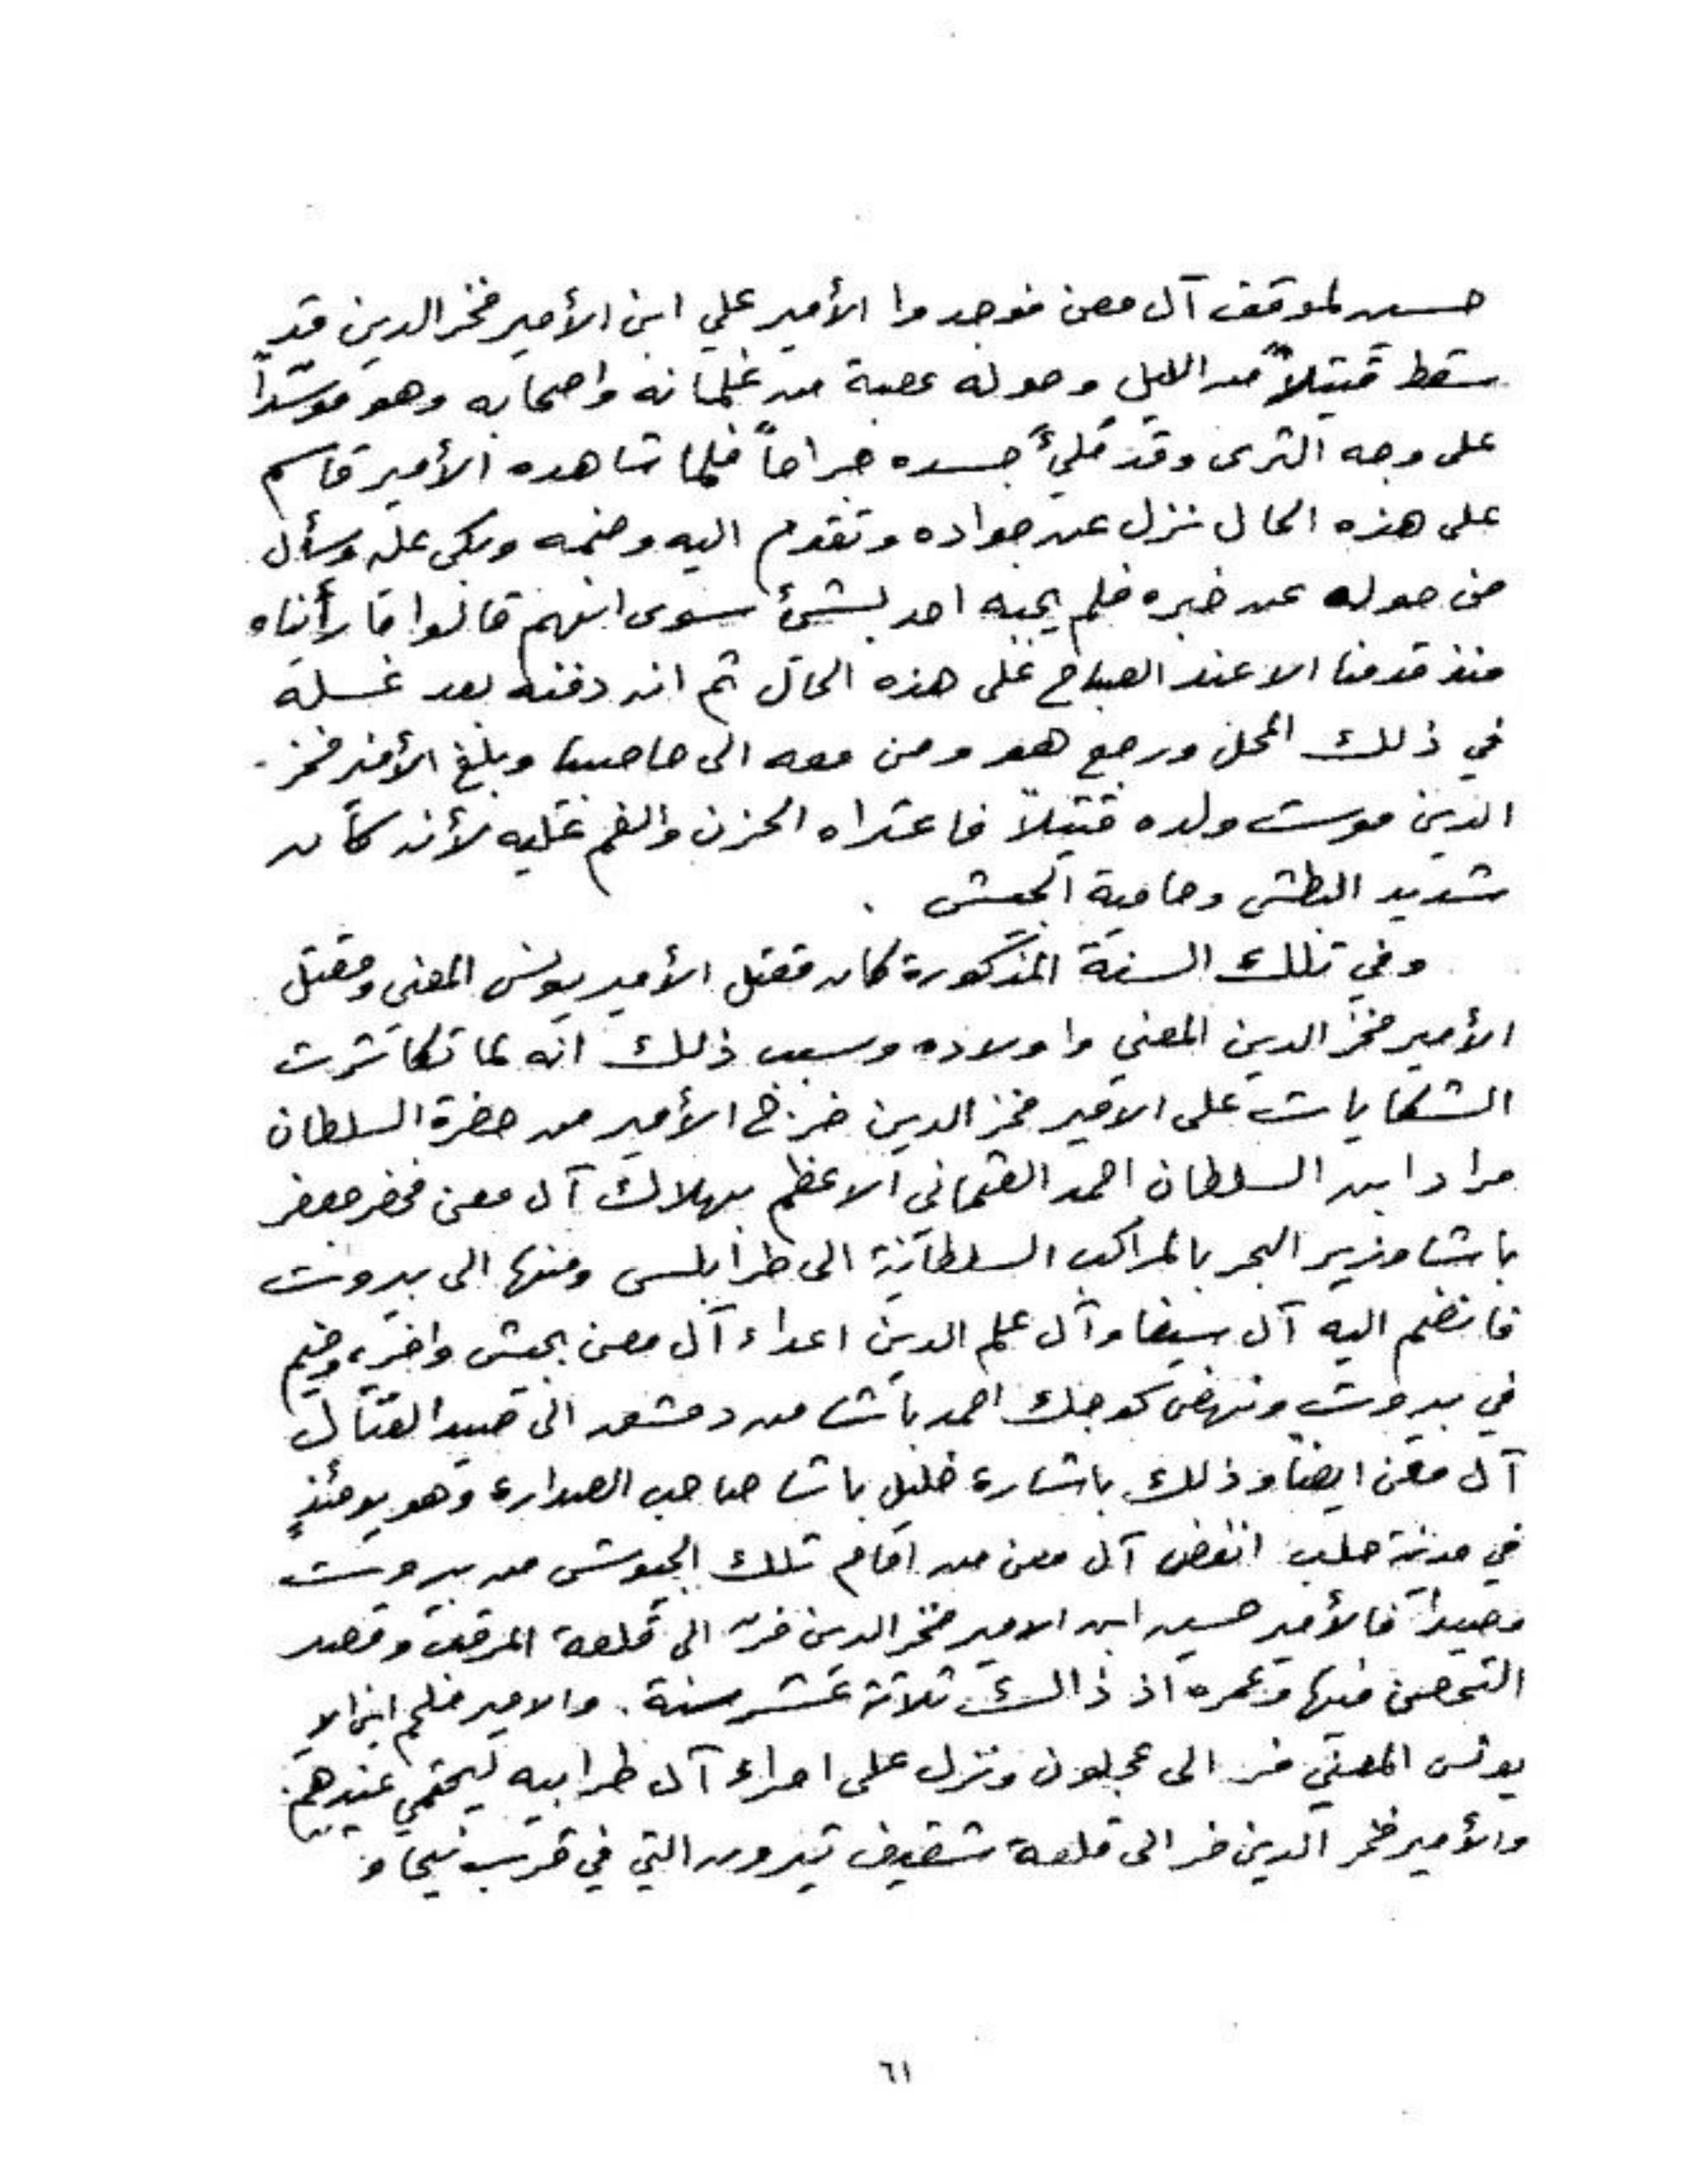 حسين لموقف آل معن فوجدوا الأمير علي ابن الأمير فخر الدين قد
سقط قتيلاً من الليل وحوله عصبة من غلمانه واصحابه وهو موسّداً
على وجه الثرى وقد مُلِئَ جسده جراحاً فلما شاهده الأمير قاسم
على هذه الحال نزل عن جواده وتقدم اليه وضمه وبكى عليه وسأل
من حوله عن خبره فلم يجبه احد بشئ سوى انهم قالوا ما رأيناه
منذ قدمنا الا عند الصباح على هذه الحال ثم انه دفنه بعد غسله
في ذلك المحل ورجع هو ومن معه الى حاصبيا وبلغ الأمير فخر
الدين موت ولده قتيلاً فاعتراه الحزن والغم عليه لأنه كان
شديد البطش وحامية الجيش .
وفي تلك السنة المذكورة كان مقتل الأمير يونس المعني ومقتل
الأمير فخر الدين المعني واولاده وسبب ذلك انه لما تكاثرت
الشكايات على الامير فخر الدين خرج الأمير من حضرة السلطان
مراد ابن السلطان احمد العثماني الاعظم بهلاك آل معن فحضر جعفر
باشا وزير البحر بالمراكب السلطانية الى طرابلس ومنها الى بيروت
فانضم اليه آل سيفا وآل علم الدين اعداء آل معن بجيش وافر، وخيم
في بيروت ونهض كوجك احمد باشا من دمشق الى صيدا لقتال
آل معن ايضاً وذلك باشارة خليل باشا صاحب الصدارة وهو يومئذٍ
في مدينة حلب انفض آل معن من امام تلك الجيوش من بيروت
وصيدا فالأمير حسين ابن الامير فخر الدين فرّ الى قلعة المرقب وقصد
التحصن فيها وعمره اذ ذالك ثلاثة عشر سنة . والامير ملحم ابن الا
يونس المعني فر الى عجلون ونزل على امراء آل طرابيه ليحتمي عندهم .
والأمير فخر الدين فر الى قلعة شقيف تيرون التي في قرب نيحا و
٦١